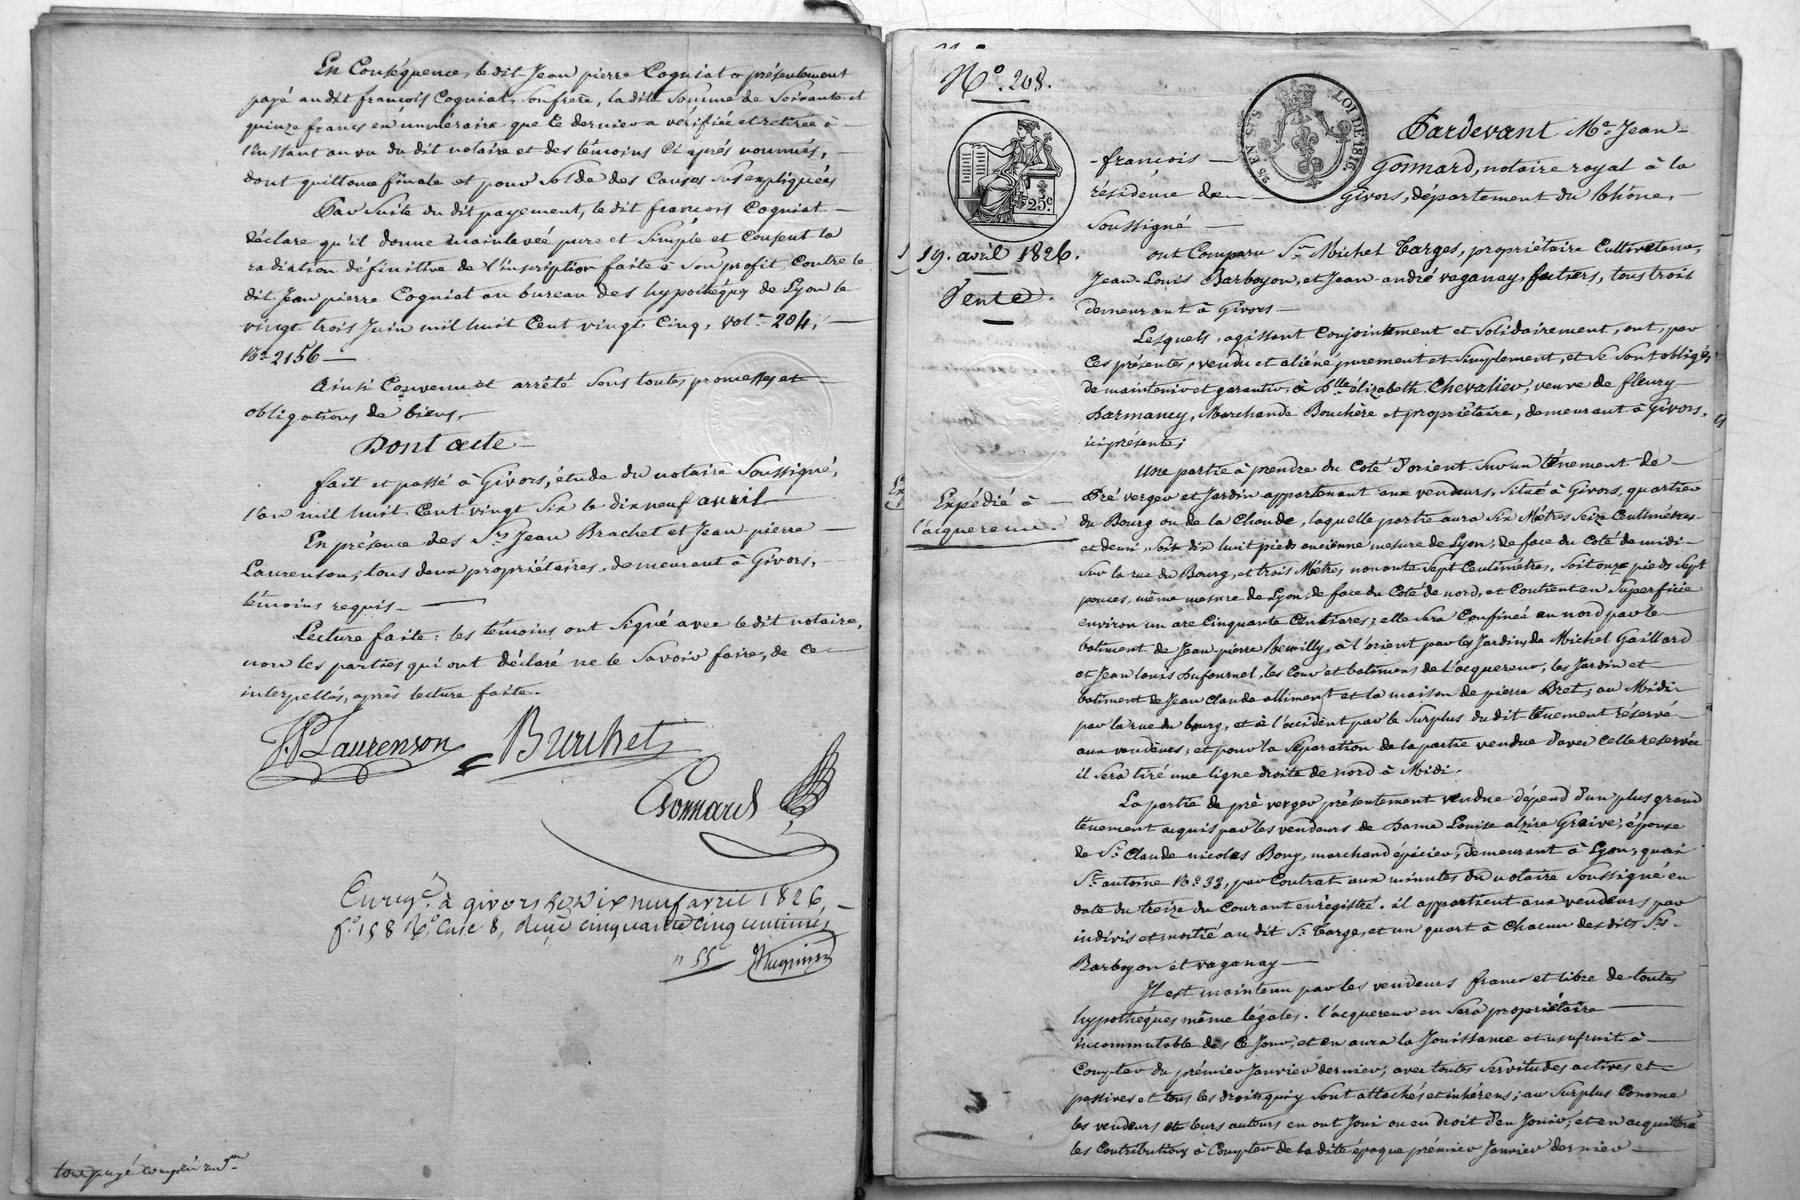 En Conséquence, le dit Jean pierre Cogniat a présentement
payé au dit françois Cogniat, son frère, la dite Somme de Soixante et
quinze francs en numéraire que ce dernier a vérifiée et retirée à
l'instant au vu du dit notaire et des témoins ci après nommés,
dont quittance finale et pour Solde des Causes Sus expliquées
Par Suite du dit payement, le dit françois Cogniat
déclare qu'il donne mainlevée pure et Simple et Consent la
radiation définitive de l'inscription faite à Son profit, Contre le
dit Jean pierre Cogniat au bureau des hypothèques de Lyon le
vingt trois Juin mil huit Cent vingt Cinq, vol.e 204,
N.o 2156
Ainsi Convenu et arrêté Sous toutes promesses et
obligations de biens.
Dont acte
fait et passé à Givors, étude du notaire Soussigné,
l'an mil huit Cent vingt Six le dix neuf avril
En présence des Srs Jean Brachet et Jean pierre
Laurenson, tous deux propriétaires, demeurant à Givors,
témoins requis.
Lecture faite : les témoins ont Signé avec le dit notaire,
non les parties qui ont déclaré ne le Savoir faire, de ce
interpellés, après lecture faite.
JP Laurenson Burchet
Gonnard
Enregé à givors le Dix neuf avril 1826,
fo 158 Ro Case 8, Reçu cinquante cinq centimes
" 55
No. 208.
25 EN SUS
LOI DE 1816
25c
19. avril 1826.
Vente.
Expédié à
l'acquereur.
Pardevant Me Jean-
françois Gonnard, notaire royal à la
résidence de Givors, département du Rhône,
Soussigné
ont Comparu Sr. Michel Targes, propriétaire Cultivateur,
Jean-Louis Barboyon, et Jean andré vaganay, futiers, tous trois
demeurant à Givors
Lesquels, agissant Conjointement et Solidairement, ont, par
Ces présentes, vendu et aliéné purement et Simplement, et Se Sont obligés
de maintenir et garantir, à Dlle élizabeth Chevalier, veuve de fleury
Darmancy, Marchande Bouchère et propriétaire, demeurant à Givors,
ici présente;
Une partie à prendre du Coté d'orient Sur un ténement de
Pré verger et Jardin appartenant aux vendeurs, Situé à Givors, quartier
du Bourg ou de la Chaude, laquelle partie aura Six Mètres Seize Centimètres
et demi, Soit dix huit pieds ancienne mesure de Lyon, de face du Coté de midi
Sur la rue du Bourg, et trois Mètres nonante Sept Centimètres, Soit onze pieds Sept
pouces, même mesure de Lyon, de face du Coté de nord, et Contient en Superficie
environ un are Cinquante Centiares; elle Sera Confinée au nord par le
batiment de Jean pierre Remilly, à l'orient par les Jardins de Michel Gaillard
et Jean Louis Dufournel, les Cour et batimens de l'acquereur, les Jardin et
batiment de Jean Claude alliment et la maison de pierre Bret; au Midi
par la rue du bourg, et à l'occident par le Surplus du dit ténement réservé
aux vendeurs; et pour la Séparation de la partie vendue d'avec celle réservée
il Sera tiré une ligne droite de nord à Midi.
La partie de pré verger présentement vendue dépend d'un plus grand
ténement acquis par les vendeurs de Dame Louise alzire Graive, épouse
de Sr. Claude nicolas Bony, marchand épicier, demeurant à Lyon, quai
St. antoine No. 33, par Contrat aux minutes du notaire Soussigné en
date du treize du Courant enregistré. il appartient aux vendeurs par
indivis et moitié au dit Sr. Targe, et un quart à Chacun des dits Srs
Barboyon et vaganay
Il est maintenu par les vendeurs franc et libre de toutes
hypothèques même légales. l'acquereur en Sera propriétaire
incommutable dès Ce Jour, et en aura la Jouissance et usufruit à
Compter du prémier Janvier dernier, avec toutes Servitudes actives et
passives et tous les droits qui y Sont attachés et inhérens; au Surplus Comme
les vendeurs et leurs auteurs en ont Joui ou eu droit d'en Jouir, et en acquittera
les Contributions à Compter de la dite époque prémier Janvier dernier